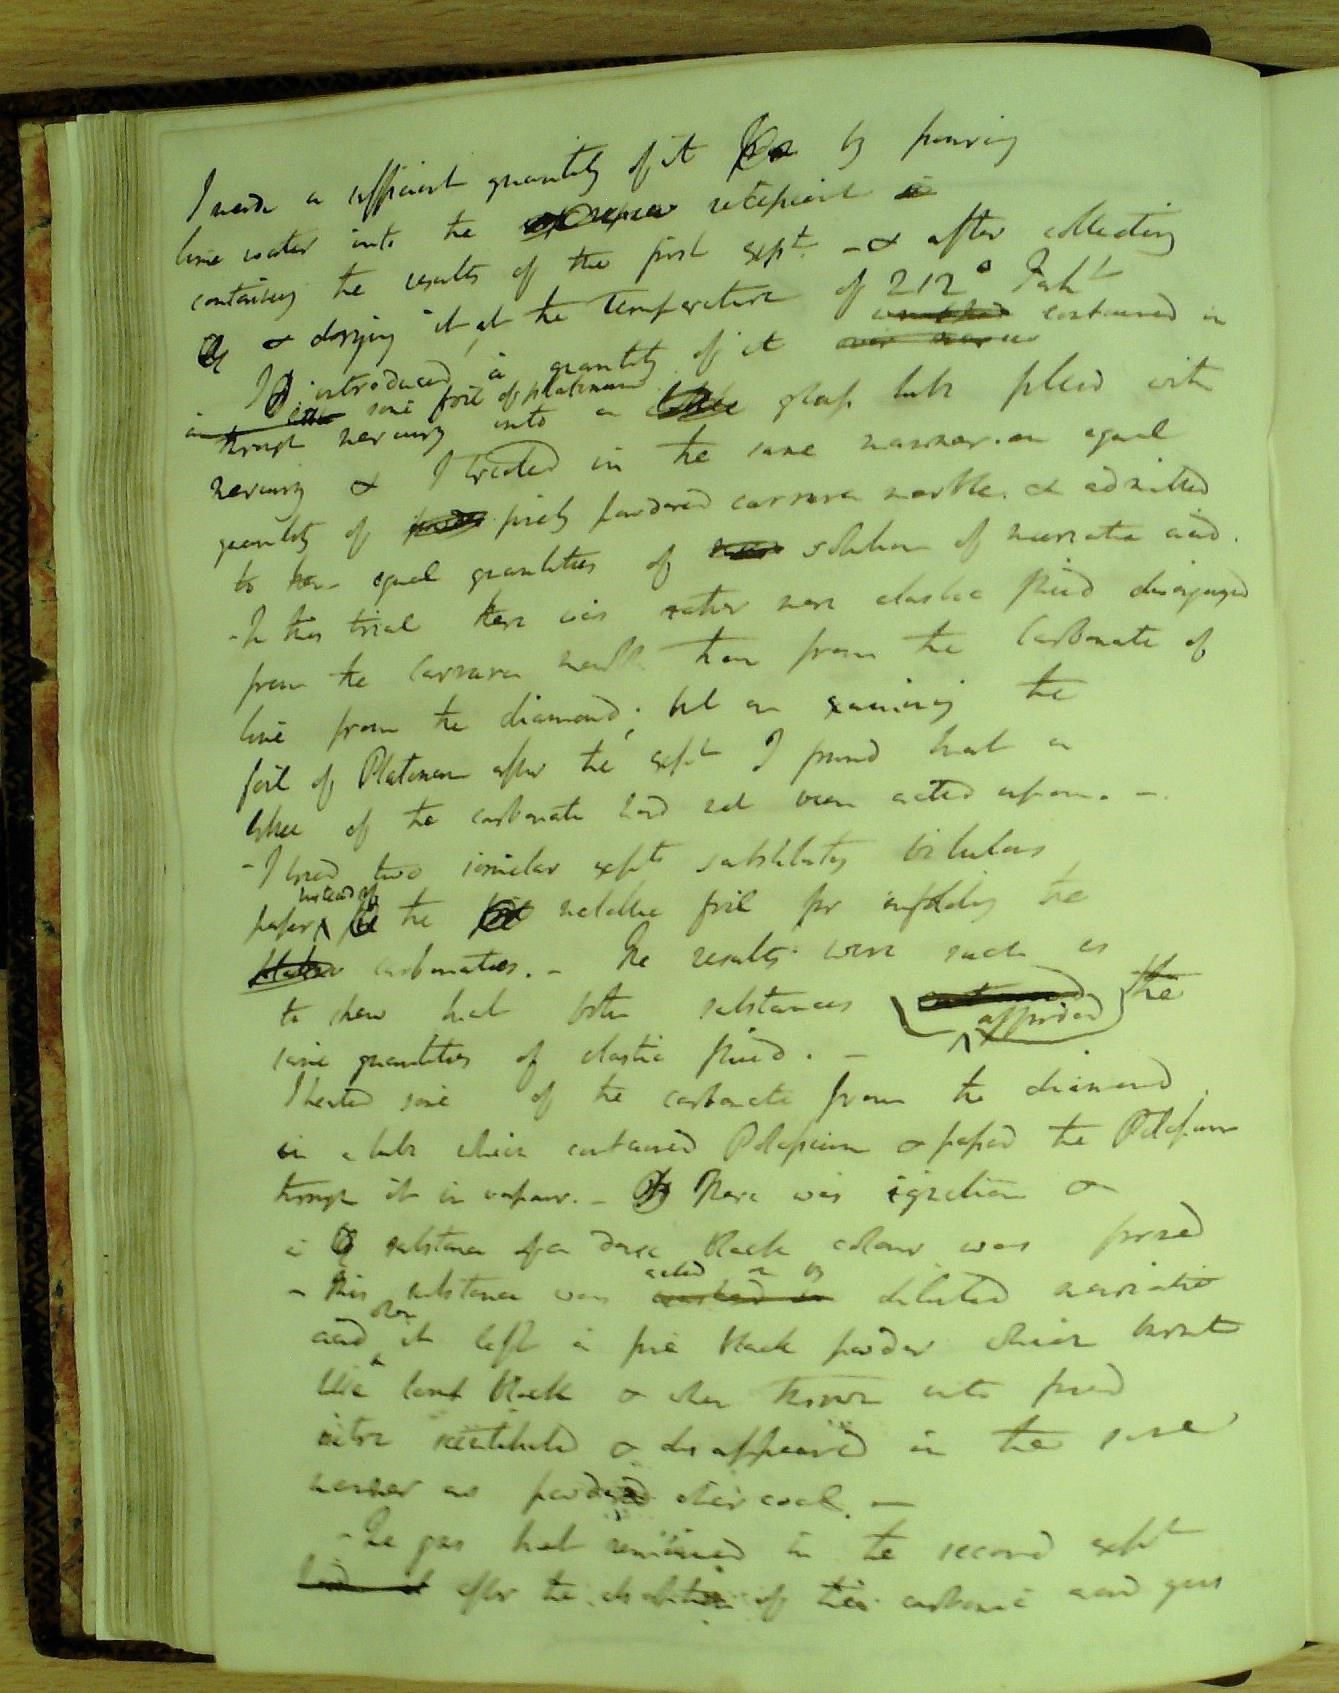 I made a sufficient quantity of it by pouring
lime water into the recipient
containing the results of the first expt. - & after collecting
& drying it at the temperature of 212° Faht
I introduced a quantity of it contained in
some foil of platinum
through mercury into a glass tube filled with
mercury & I treated in the same manner an equal
quantity of finely powdered carrara marble. & admitted
to them equal quantities of solution of muriatic acid.
- In this trial there was rather more elastic fluid disengaged
from the Carrara marble than from the Carbonate of
lime from the diamond; but on examining the
foil of Platinum after the expt I found that a
little of the carbonate had not been acted upon. -
- I tried two similar expts substituting bibulous
paper instead of the metallic foil for enfolding the
carbonates. - The results were such as
to shew that both substances afforded the
same quantities of elastic fluid. -
I heated some of the carbonate from the diamond
in a tube which contained Potassium & passed the Potassium
through it in vapour. - There was ignition &
a substance of a dark black colour was formed
- This substance was acted on by diluted muriatic
acid when it left a fine black powder which burnt
like lamp black & when thrown into fused
nitre scintillated & disappeared in the same
manner as powdered charcoal. -
- The gas that remained in the second expt
after the absorption of the carbonic acid gas